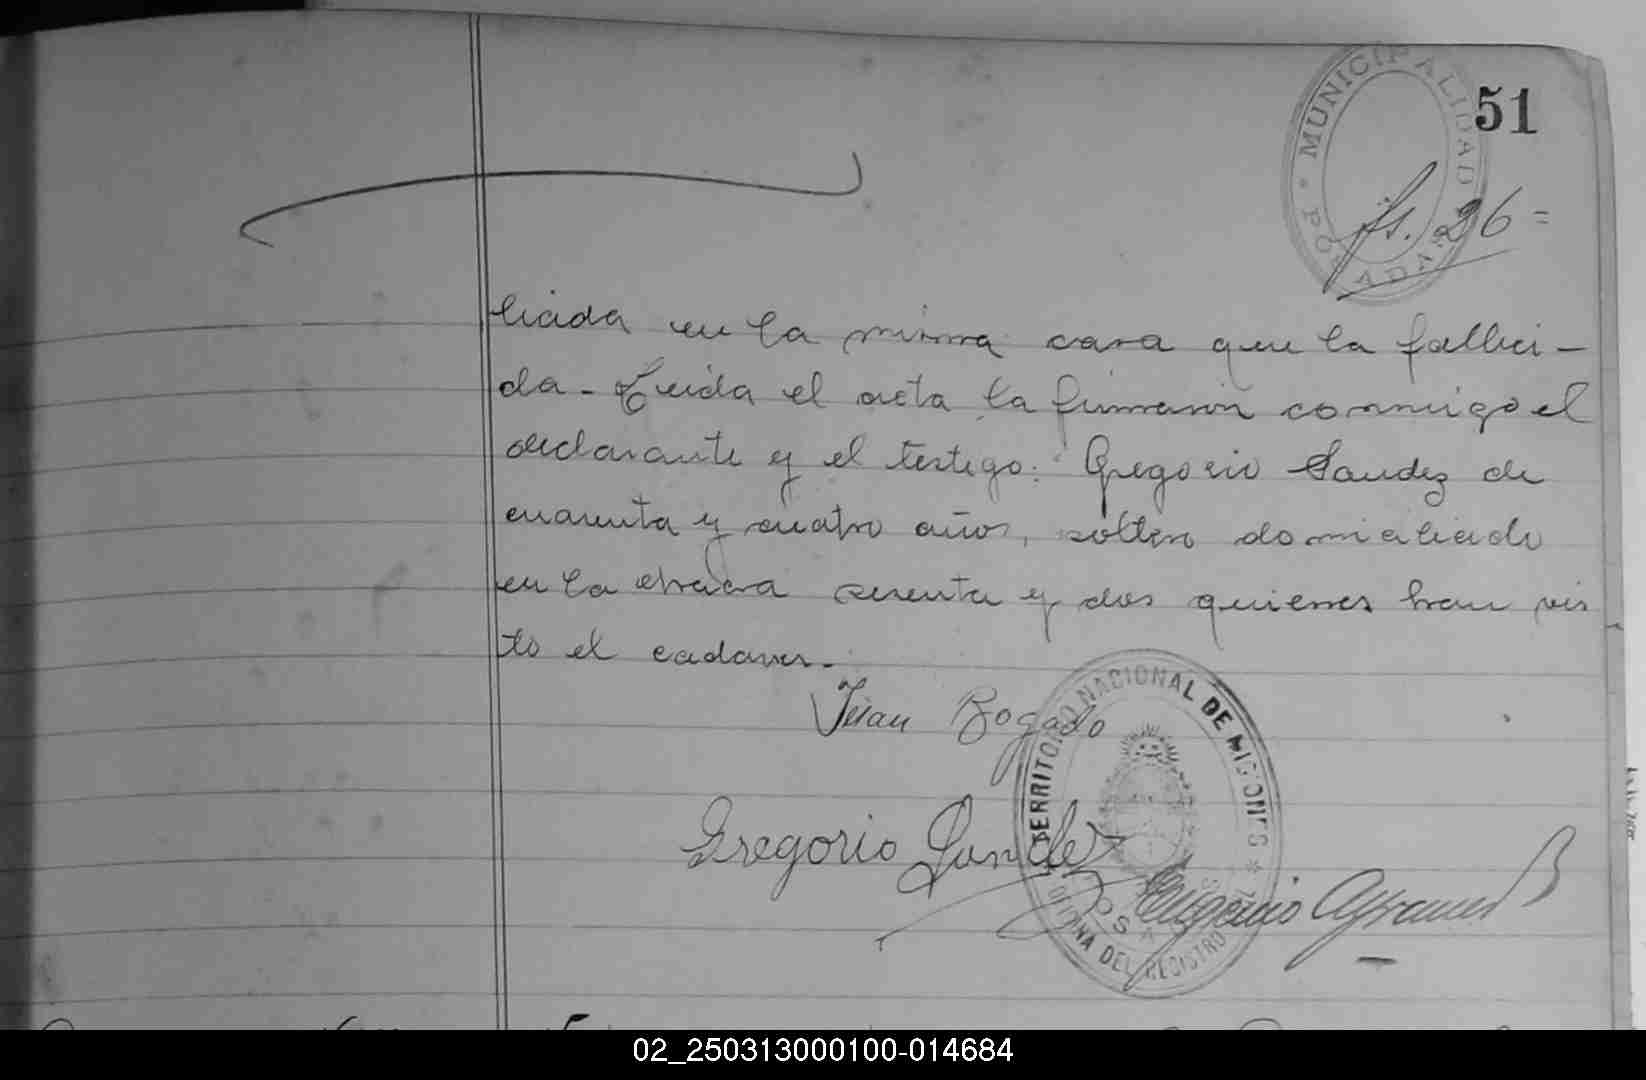 MUNICIPALIDAD POSADAS
51
fs. 26 =
liciada en la misma casa que la falleci-
da - Leida el acta la firmaron conmigo el
declarante y el testigo: Gregorio Sandez de
cuarenta y cuatro años, soltero domiciliado
en la chacra sesenta y dos quienes han vis
to el cadaver.-
Juan Bogado
TERRITORIO NACIONAL DE MISIONES
OFICINA DEL REGISTRO
Gregorio Sandez
Eugenio
02_250313000100-014684